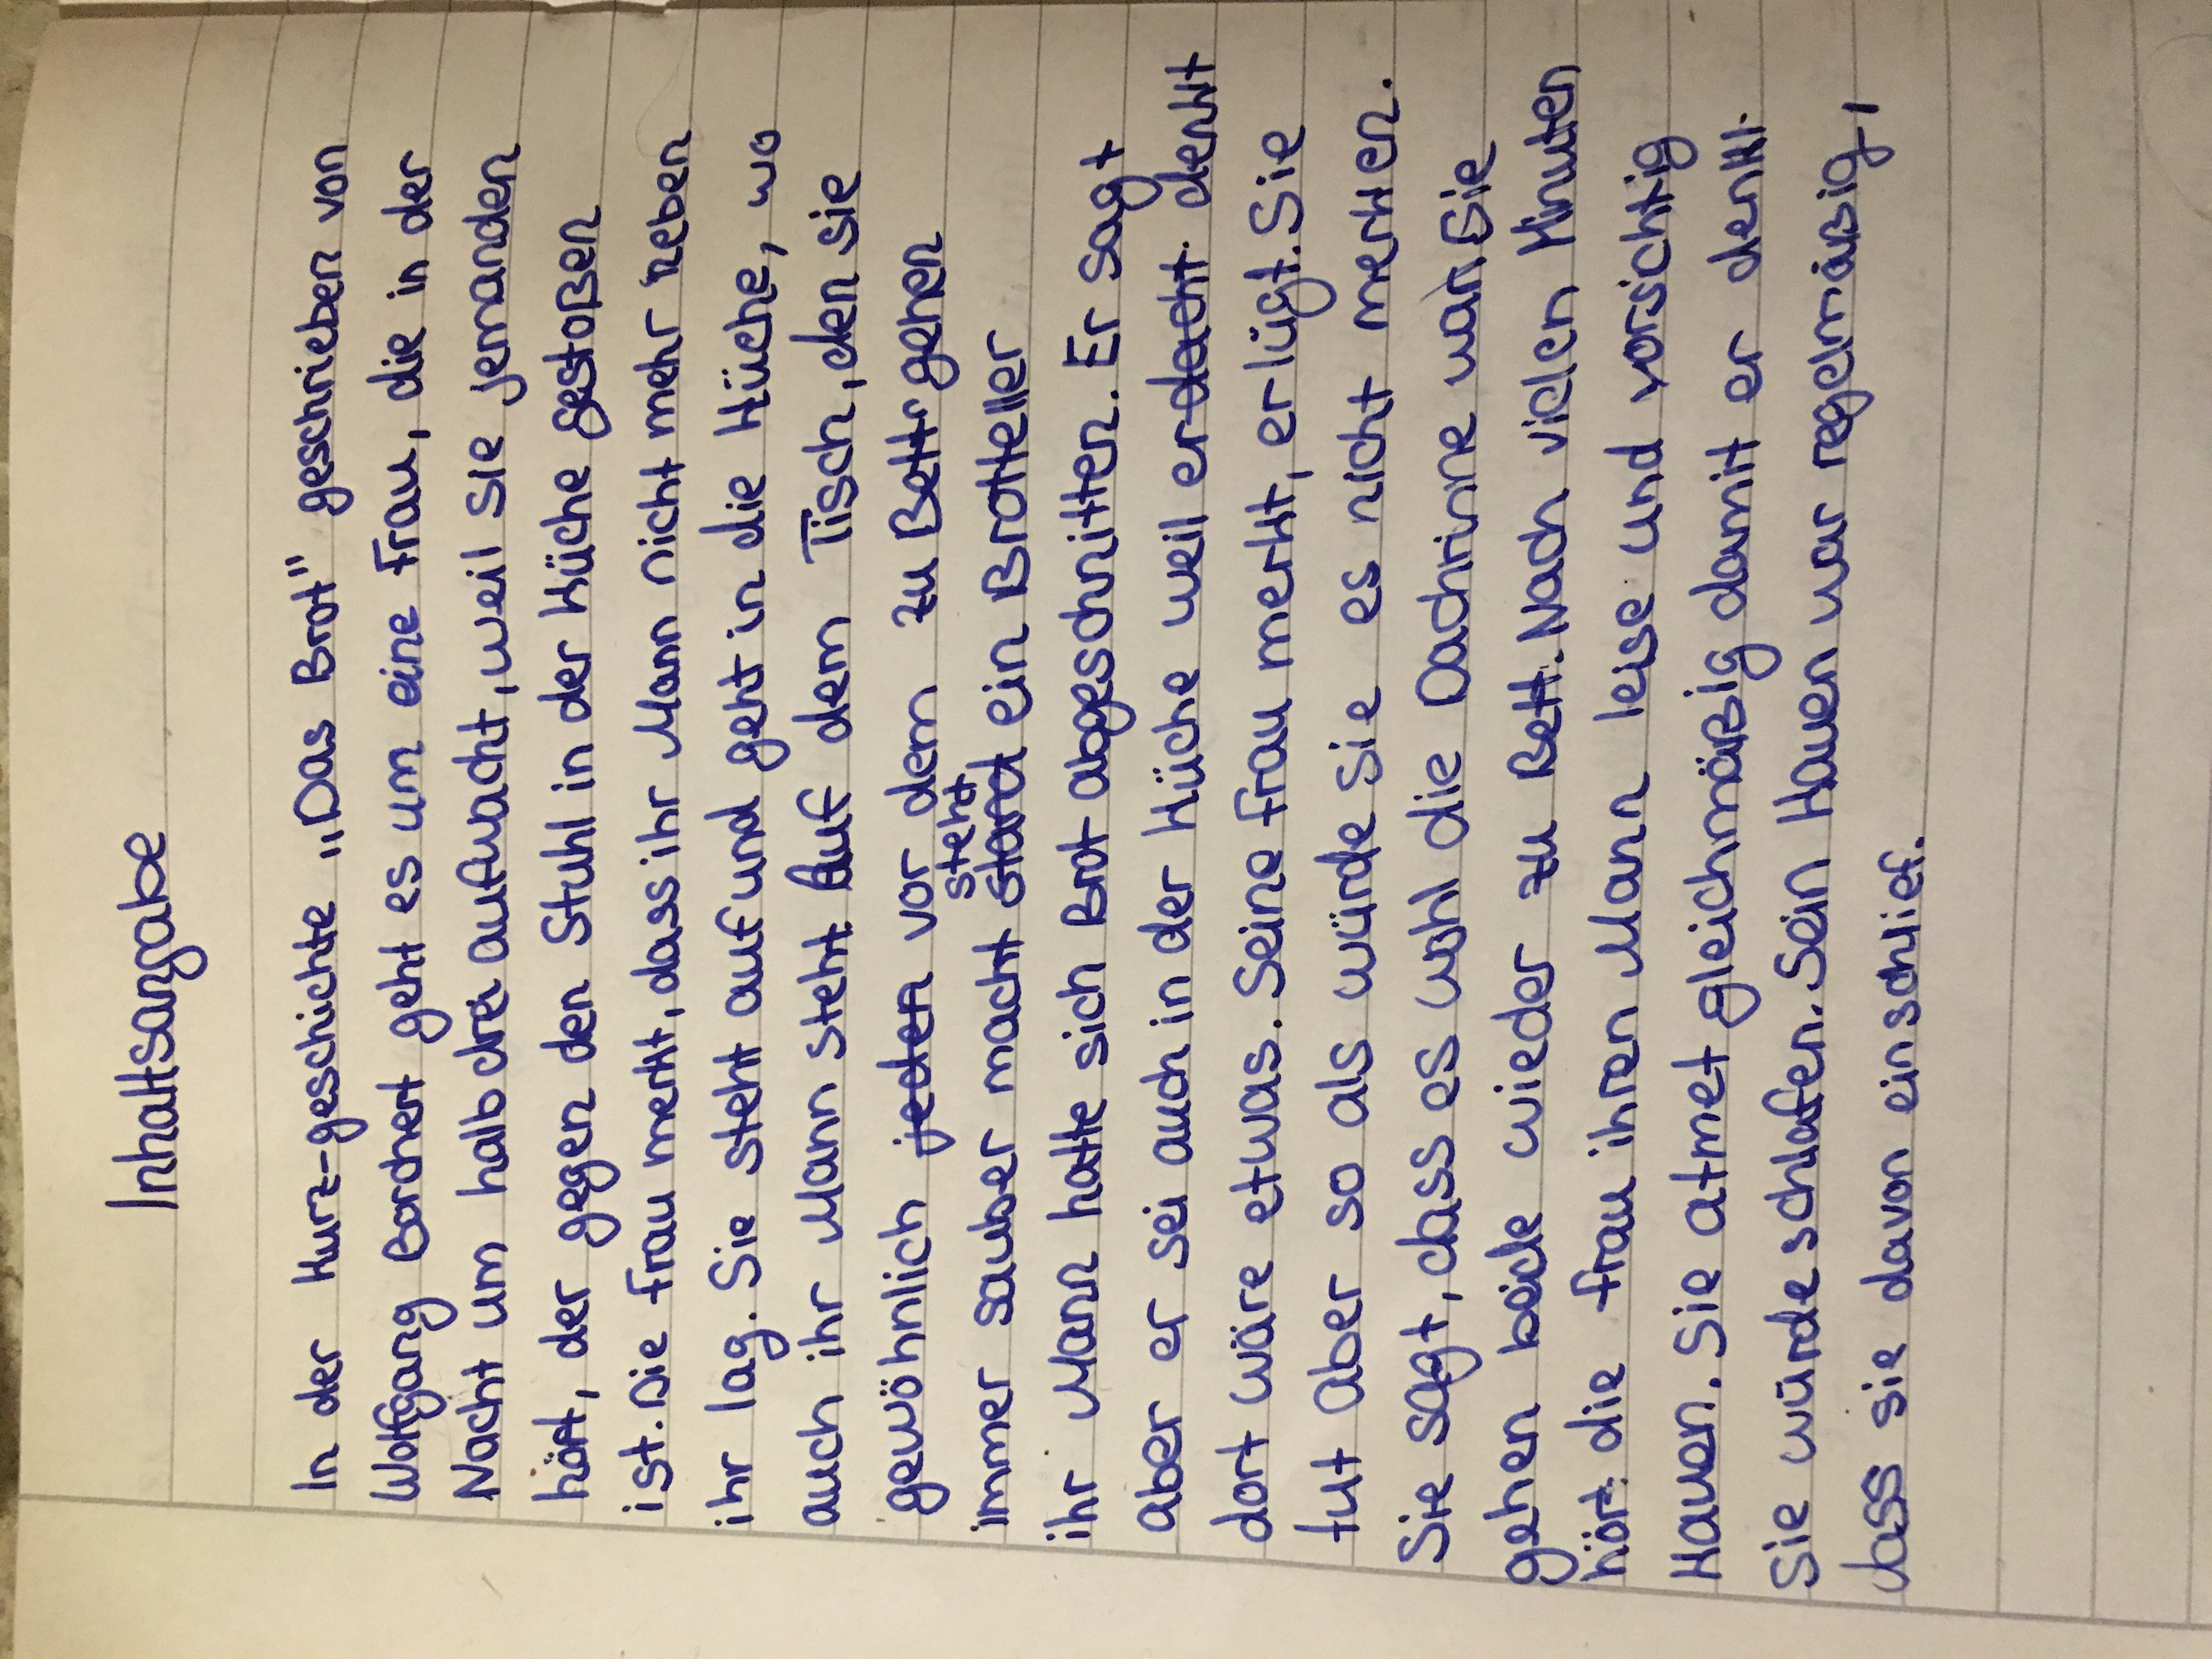 Inhaltsangabe
In der Kurz-geschichte „Das Brot" geschrieben von
Wolfgang Borchert geht es um eine Frau, die in der
Nacht um halb drei aufwacht, weil sie jemanden
hört, der gegen den Stuhl in der Küche gestoßen
ist. Die Frau merkt, dass ihr Mann nicht mehr neben
ihr lag. Sie steht auf und geht in die Küche, wo
auch ihr Mann steht. Auf dem Tisch, den sie
gewöhnlich jeden vor dem zu Bett gehen
immer sauber macht stand steht ein Brotteller
ihr Mann hatte sich Brot abgeschnitten. Er sagt
aber er sei auch in der Küche weil er dacht denkt
dort wäre etwas. Seine Frau merkt, er lügt. Sie
tut aber so als würde sie es nicht merken.
Sie sagt, dass es wohl die Dachrinne war. Sie
gehen beide wieder zu Bett. Nach vielen Minuten
hört die Frau ihren Mann leise und vorsichtig
Kauen. Sie atmet gleichmäßig damit er denkt.
Sie würde schlafen. Sein Kauen war regelmäßig,
dass sie davon einschlief.